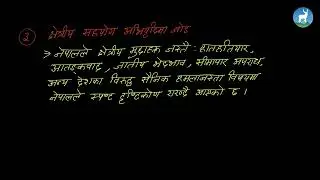 ③ क्षेत्रीय सहयोग अभिवृद्धिमा जोड
➢ नेपालले क्षेत्रीय मुद्दाहरू जस्तै: हातहतियार,
आतङ्कवाद, जातीय भेदभाव, सीमापार अपराध,
अन्य देशका विरुद्ध सैनिक हमलाजस्ता विषयमा
नेपालले स्पष्ट दृष्टिकोण राख्दै आएको छ ।